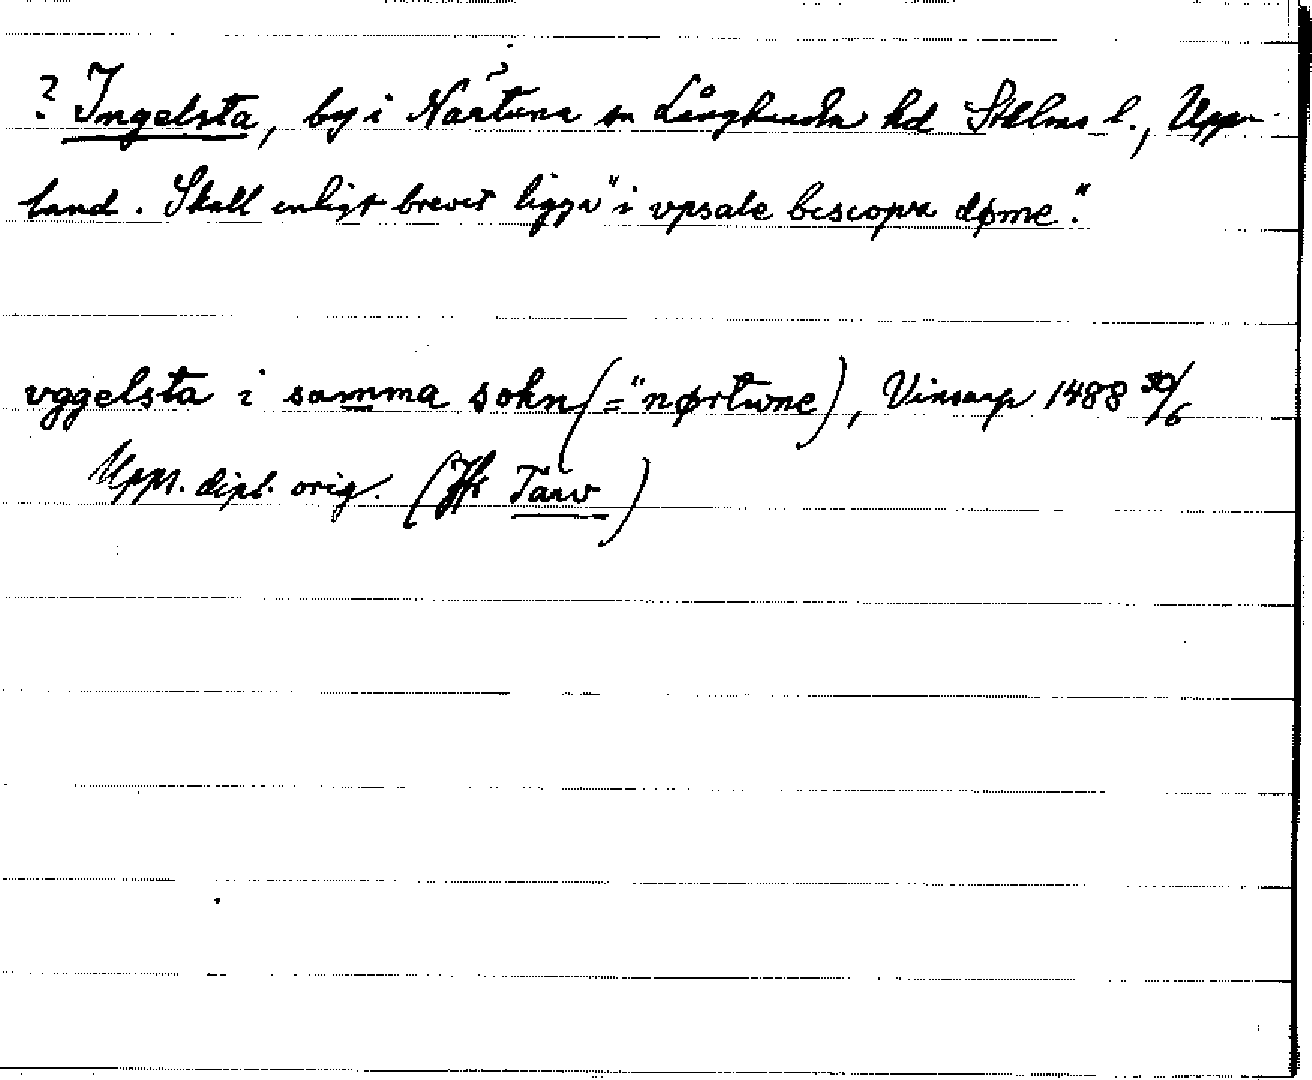 ? Ingelsta, by i Närtuna sn Långhundra hd Sthlms l., Upp-
land. Skall enligt brevet ligga "i vpsale bescopx døme".
yggelsta i samma sokn (= "nørtwne), Vinsarp 1488 30/6
Upps. dipl. orig. (Jfr Tarv)